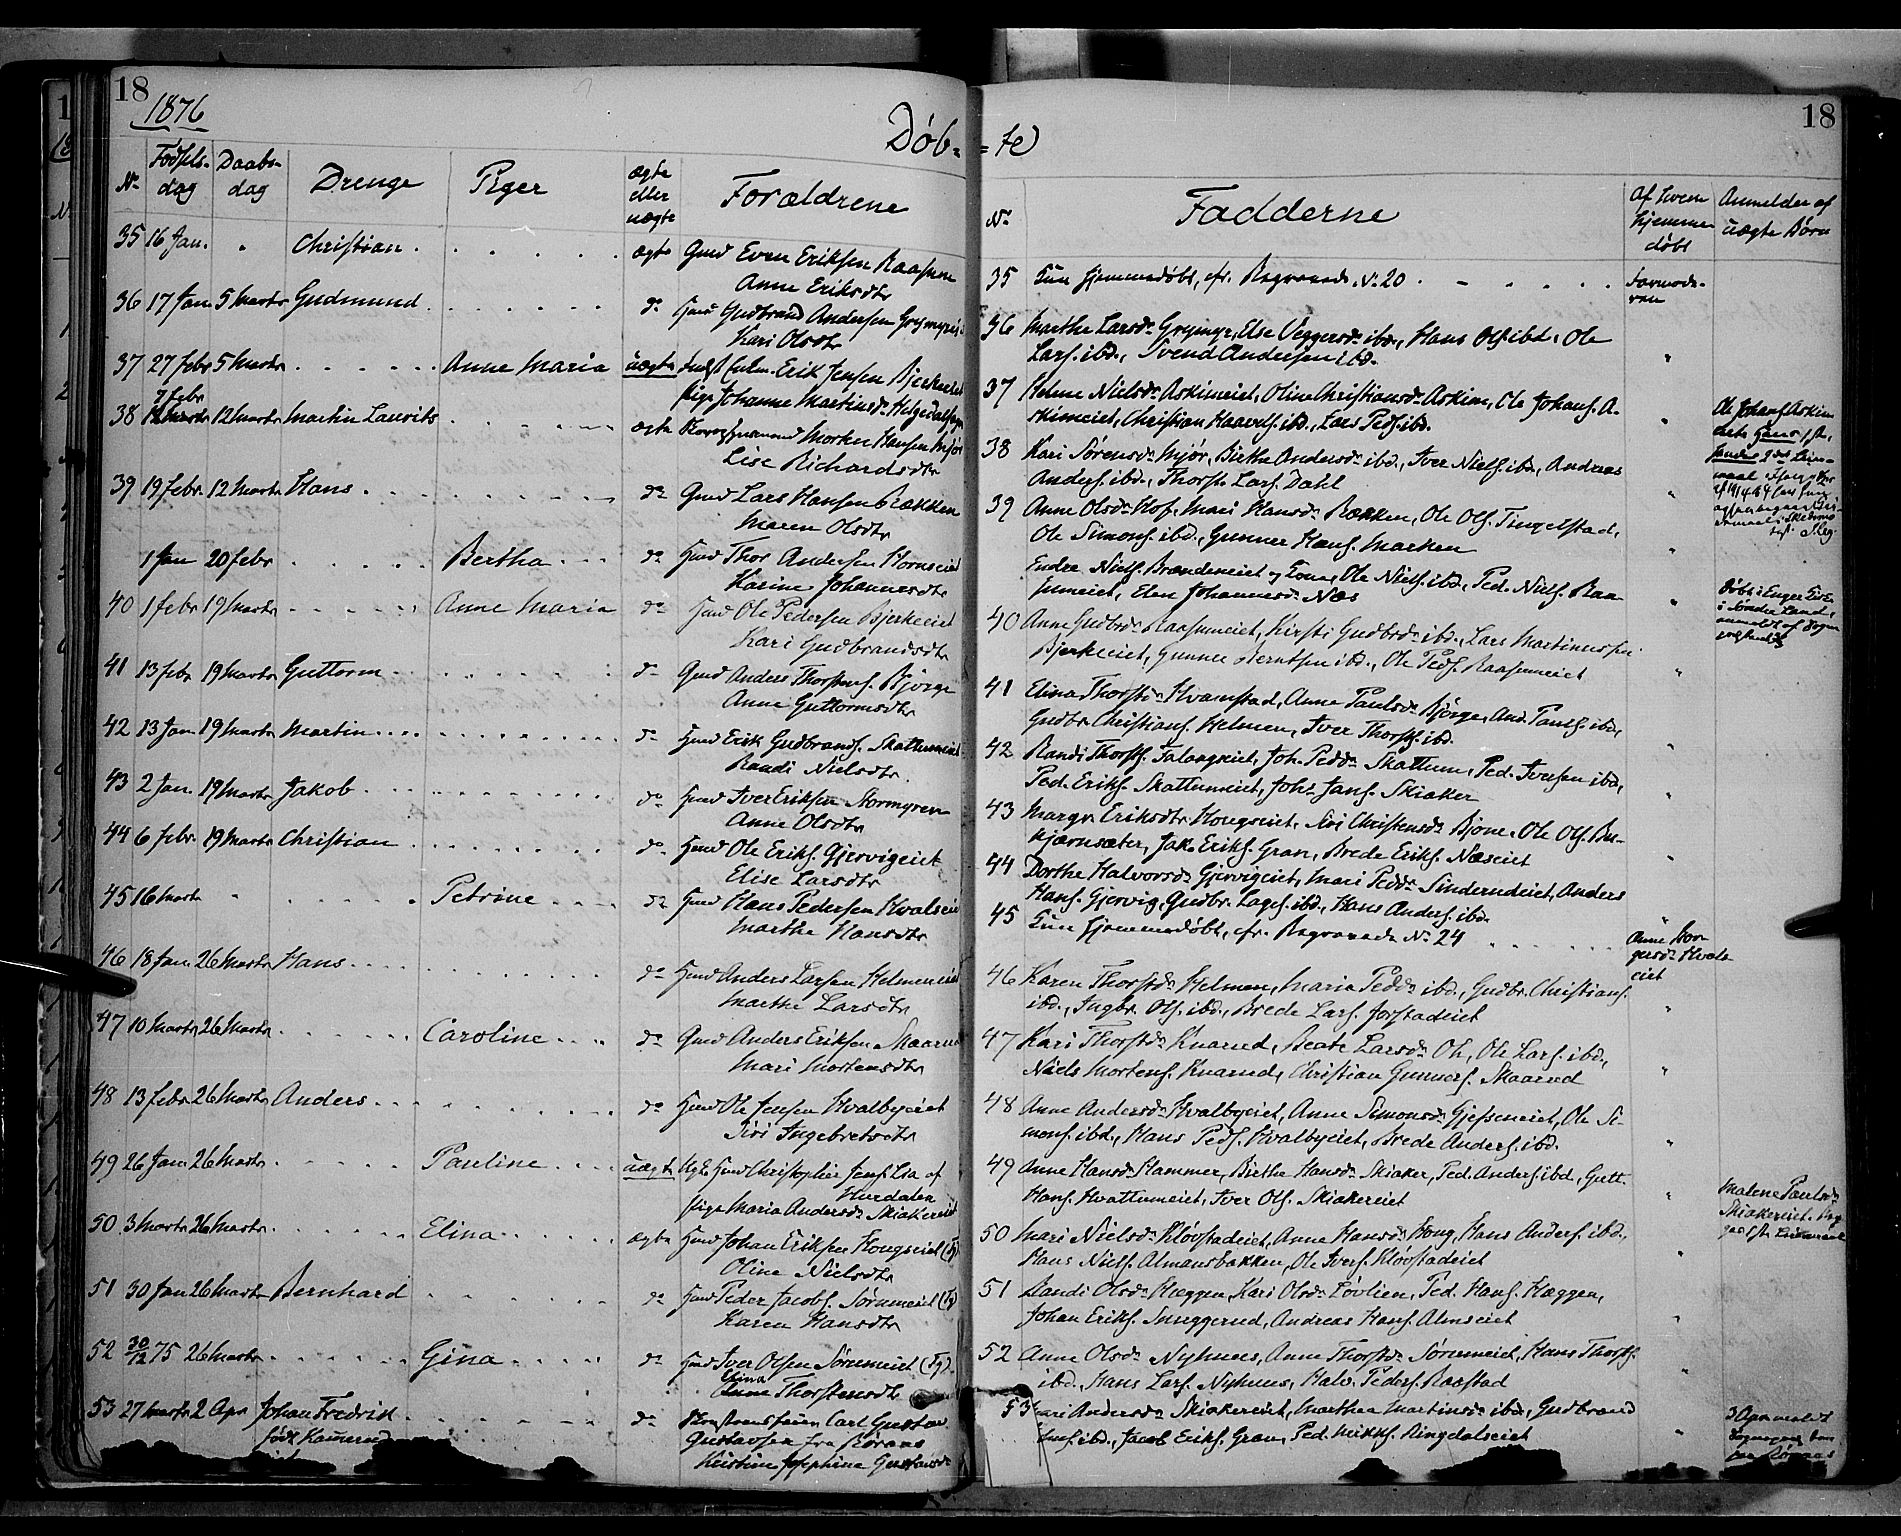 18
1876
Døb-
No Fødsels-dag Daabs-dag Drenge Piger ægte eller uægte Forældrene
35 16 Jan. " Christian ægte Gmd Even Eriksen Raasum
Anne Eriksdtr
36 17 Jan 5 Marts Gudmund do Hmd Gudbrand Andersen Grymyr
Kari Olsdtr
37 27 febr 5 Marts Anne Maria uægte Erik Jensen Bjerke
Pige Johanne Martinsdr
7 febr
38 12 Marts Martin Laurits ægte Morten Hansen Mjør
Lise Richardsdtr
39 19 febr. 12 Marts Hans do Gmd Lars Hansen Brækken
Maren Olsdtr
1 Jan 20 febr Bertha do Hmd Thor Andersen Hornseiet
Karine Johannesdtr
40 1 febr 19 Marts Anne Maria do Hmd Ole Pedersen Bjerkeeiet
Kari Gudbrandsdtr
41 13 febr 19 Marts Guttorm do Gmd Anders Thorstens. Bjørge
Anne Guttormsdtr
42 13 Jan 19 Marts Martin do Hmd Erik Gudbrands. Skattumeiet
Randi Nielsdtr.
43 2 Jan. 19 Marts Jakob do Hmd Iver Eriksen Stormyren
Anne Olsdtr
44 6 febr. 19 Marts Christian do Hmd Ole Eriks. Gjervigeiet
Elise Larsdtr
45 16 Marts " Petrine do Hmd Hans Pedersen Hvalseiet
Marthe Hansdtr
46 18 Jan. 26 Marts Hans do Hmd Anders Larsen Helmeneiet
Marthe Larsdtr
47 10 Marts 26 Marts Caroline do Gmd Anders Eriksen Skaarud
Mari Mortensdtr
48 13 febr 26 Marts Anders do Hmd Ole Jensen Hvalbyeiet
Siri Ingebretsdtr
49 26 Jan 26 Marts Pauline uægte Christopher Jens. Lia af
Hurdalen
Pige Maria Andersdr Skiakereiet
50 3 Marts 26 Marts Elina ægte Hmd Johan Eriksen Hongseiet (Tg)
Oline Nielsdtr
51 30 Jan 26 Marts Bernhard do Hmd Peder Jacobs. Sørumeiet (Tg)
Karen Hansdtr
52 30/12 75 26 Marts Gina do Hmd Iver Olsen Sørumeiet (Tg).
Anne Thorstensdtr
53 27 Marts 2 Apr Johan Fredrik do Carl Gustav
Gustavsen fra Røraas
Kristine Josephine Gustavsdr
18
= te
No Fadderne Af hvem hjemmedøbt Anmelder af uægte Børn
35 Kun hjemmedøbt, cfr. Begravede No 20
36 Marthe Larsdr Grymyr, Else Veggersdr ibd., Hans Ols. ibd., Ole
Lars. ibd., Svend Andersen ibd.
37 Helene Nielsdr Askimeiet, Olina Christiansdr Askim, Ole Johans. A-
skimeiet, Christian Haavels. ibd., Lars Peds. ibd.
38 Kari Sørensdr Mjør, Birthe Andersdr ibd., Iver Niels. ibd., Andreas
Anders. ibd., Thorst. Lars. Dahl
39 Anne Olsdr Hof, Mari Hansdr Bækken, Ole Ols. Tingelstad,
Ole Simons. ibd., Gunner Hans. Marken
Endre Niels. Brændeneiet og Kone, Ole Niels. ibd., Ped. Niels. Raa-
sumeiet, Elen Johannesdr Næs
Døbt i Enger Kirke
i Søndre Land,
40 Anne Gudbrdr Raasumeiet, Kirsti Gudbrdr ibd., Lars Martinussen
Bjerkeeiet, Gunner Berntsen ibd., Ole Peds. Raasumeiet
41 Elina Thorstdr Hvamstad, Anne Paulsdr Bjørge, And. Pauls. ibd,
Gudbr. Christians. Helmen, Iver Thorsts. ibd.
42 Randi Thorsts. Falangeiet, Joh. Peddr Skattum, Ped. Iversen ibd,
Ped. Eriks. Skattumeiet, Johs Jans. Skiaker
43 Margr. Eriksdtr Hongseiet, Siri Christensdr Bjone, Ole Ols. Bu-
kjærnsæter, Jak. Eriks. Gran, Brede Eriks. Næseiet
44 Dorthe Halvorsdr Gjervigeiet, Mari Peddr Sinderudeiet, Anders
Hans. Gjervig, Gudbr. Lages. ibd., Hans Anders. ibd.
45 Kun hjemmedøbt, cfr. Begravede No 24
46 Karen Thorstdr Helmen, Maria Peddr ibd., Gudbr. Christians.
ibd., Ingbr. Ols. ibd., Brede Lars. Jorstadeiet
47 Kari Thorstdr Knarud, Beate Larsdr Oh, Ole Lars. ibd.,
Niels Mortens. Knarud, Christian Gunners. Skaarud
48 Anne Andersdr Hvalbyeiet, Anne Simonsdr Gjefseneiet, Ole Si-
mons. ibd., Hans Peds. Hvalbyeiet, Brede Anders. ibd.
49 Anne Hansdr Hammer, Birthe Hansdr Skiaker, Ped. Anders. ibd., Gutt.
Hans. Hvattumeiet, Iver Ols. Skiakereiet
Malene Paulsdr
Skiakereiet.
50 Mari Nielsdr Kløvstadeiet, Anne Hansdr Hong, Hans Anders. ibd.,
Hans Niels. Almansbakken, Ole Ivers. Kløvstadeiet
51 Randi Olsdr Hæggen, Kari Olsdr Løvlien, Ped. Hans. Hæggen,
Johan Eriks. Sneggerud, Andreas Hans. Almseiet
52 Anne Olsdr Nyhuus, Anne Thorstdr Sørumeiet, Hans Thorsts.
ibd., Hans Lars. Nyhuus, Halv. Peders. Raastad
53 Andersdr Skiakereiet, Marthea Martinsdr ibd., Gudbrand
ibd., Jacob Eriks. Gran, Ped. Mikks. Ringdalseiet